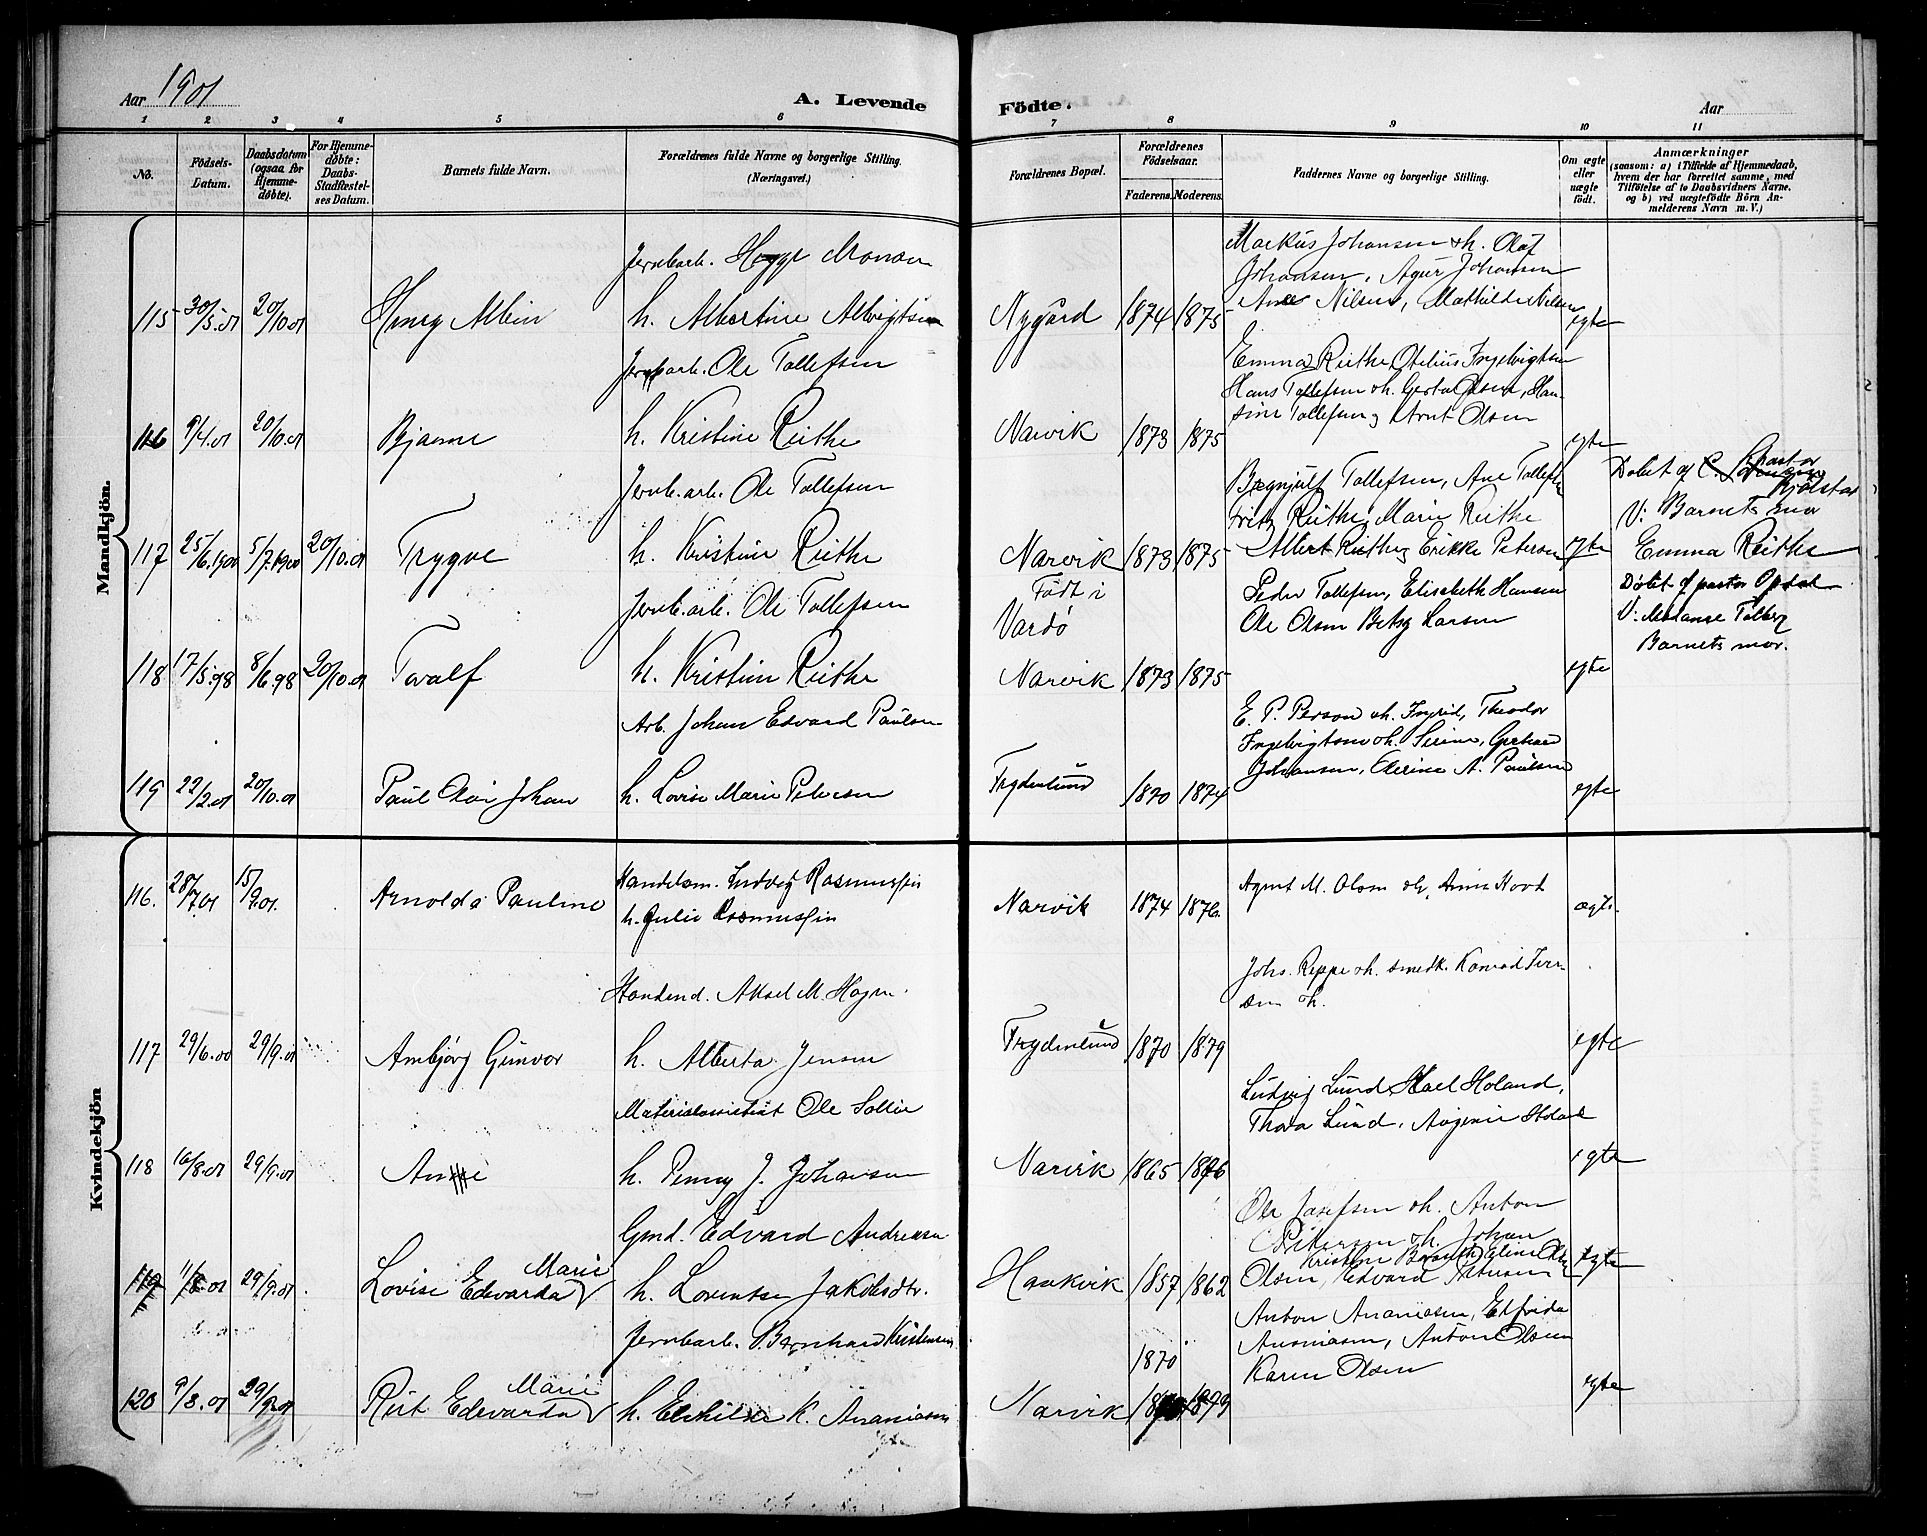 Aar 1901
A. Levende
Födte.
Aar
1 2 3 4 5 6 7 8 9 10 11
No.
Födsels-Datum.
Daabsdatum (ogsaa for Hjemmedøbte).
For Hjemmedøbte: Daabs-Stadfæstelses Datum.
Barnets fulde Navn.
Forældrenes fulde Navne og borgerlige Stilling. (Næringsvei.)
Forældrenes Bopæl.
Forældrenes Födselsaar.
Faderens. Moderens.
Faddernes Navne og borgerlige Stilling.
Om ægte eller uægte födt.
Anmærkninger
(saasom: a) i Tilfælde af Hjemmedaab, hvem der har forrettet samme, med Tilföielse af to Daabsvidners Navne, og b) ved uægtefödte Börn Anmelderens Navn m. V.)
Mandkjön.
Jernbarb. Hegge Monsen
115 30/5.01 20/10.01 Henry Albin h. Albertine Albrigtsen Nygård 1874 1875 egte
Markus Johansen & h. Olaf
Johansen, Agur Johansen
Ane Nilsen, Mathilde Nilsen
Jernbarb. Ole Tollefsen
116 9/4.01 20/10.01 Bjarne h. Kristine Reithe Narvik 1873 1875 egte
Emma Reithe, Otelius Ingebrigtsen
Hans Tollefsen & h. Gerta Olsen, Han-
sine Tollefsen og Arnt Olsen
Jernb.arb. Ole Tollefsen
117 25/6.1900 5/7.1900 20/10.01 Trygve h. Kristine Reithe Narvik 1873 1875 egte
Bregnjulf Tollefsen, Ane Tollefsen
Fritz Reithe, Marie Reithe
Albert Reithe og Erikke Peterson
Döbt af pastor
V: Barnets mor
Emma Reithe
Jernb.arb. Ole Tollefsen
118 17/5.98 8/6.98 20/10.01 Toralf h. Kristine Reithe Födt i Vardö Narvik 1873 1875 egte
Peder Tollefsen, Elisabeth Hansen
Ole Olsen Betsy Larsen
Döbt af pastor Opdal
V:
Barnets mor.
Arb. Johan Edvard Paulsen
119 22/2.01 20/10.01 Paul Olai Johan h. Lovise Marie Petersen Frydenlund 1870 1874 egte
E. P. Person & h. Ingrid, Theodor
Ingebrigtsen & h. Serine, Gerhard
Johansen, Elerine A. Paulsen
Kvindekjön
116. 28/7.01 15/9.01. Arnolda Pauline Handelsm. Ludvig Rasmussen
h. Julie Rasmussen Narvik 1874 1876. ægte.
Agent M. Olsen & h, Anna Hovt
Handend. Aksel M. Hagen.
117 29/6.00 29/9.01 Ambjörg Gunvor h. Alberta Jensen Frydenlund 1870 1879 egte
Johs. Reppe & h. smedk. Konrad Iver-
sen & h.
Materialassistent Ole Sollie
118 16/8.01 29/9.01 Anne h. Penny J. Johansen Narvik 1865 1876 egte
Ludvig Lund, Karl Holand,
Thora Lund,
Gmd. Edvard Andreasen
119 11/8.01 29/9.01 Lovise Edvarda Marie h. Lorentse Jakobsdtr. Haakvik 1857 1862 egte
Ole Josefsen & h. Anton
Pettersen & h. Johan
Olsen, Edvard Petersen
Jernbarb. Bernhard Kristensen
120 9/8.01 29/9.01 Rut Edvarda Marie h. K. Ananiasen Narvik 1870 1879 egte
Anton Ananiasen, Elfrida
Ananiasen, Anton Olsen
Karen Olsen